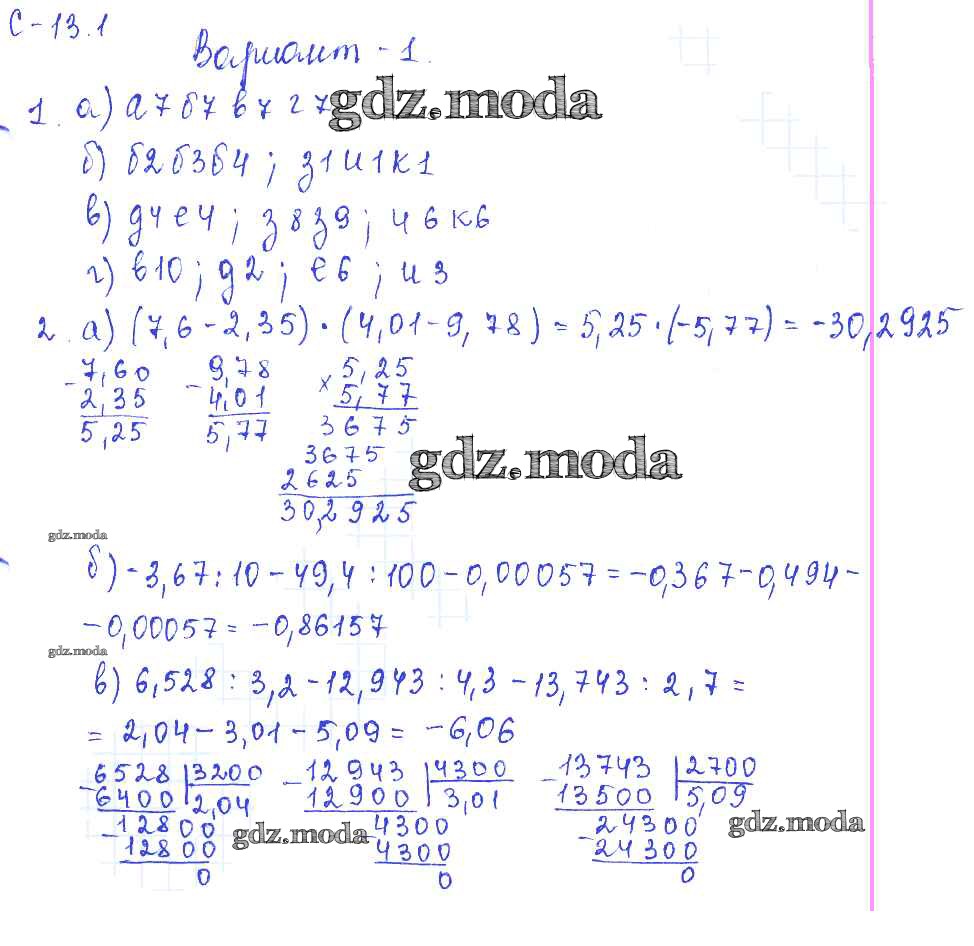 С-13.1
Вариант - 1.
1. а) а7 б7 в7 г7 gdz.moda
б) б2 б3 б4 ; з1 и1 к1
в) д4 е4 ; з8 з9 ; и6 к6
г) в10 ; д2 ; е6 ; и3
2. а) (7,6 - 2,35) · (4,01 - 9,78) = 5,25 · (-5,77) = -30,2925
- 7,60 - 9,78 × 5,25
2,35 4,01 5,77
5,25 5,77 3675
3675
2625 gdz.moda
30,2925
gdz.moda
б) -3,67 : 10 - 49,4 : 100 - 0,00057 = -0,367 - 0,494 -
- 0,00057 = -0,86157
gdz.moda
в) 6,528 : 3,2 - 12,943 : 4,3 - 13,743 : 2,7 =
= 2,04 - 3,01 - 5,09 = -6,06
- 6528 3200 - 12943 4300 - 13743 2700
6400 2,04 12900 3,01 13500 5,09
- 12800 gdz.moda - 4300 - 24300 gdz.moda
12800 4300 24300
0 0 0